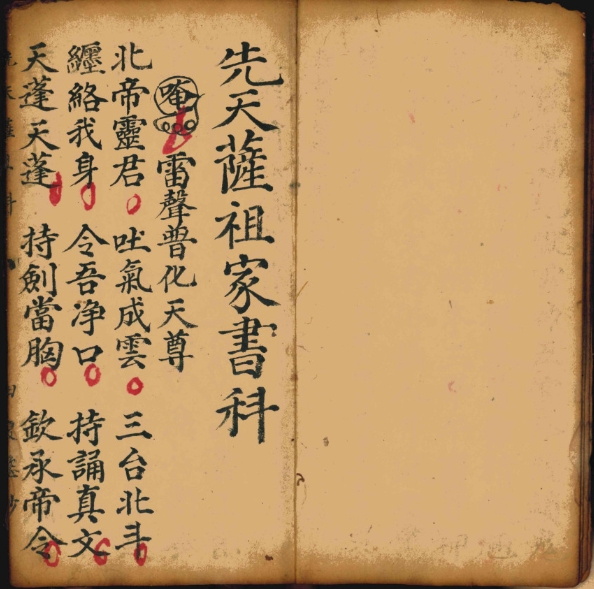 先天薩祖家書科
唵 雷聲普化天尊
北帝靈君 吐氣成雲 三台北斗
纒絡我身 令吾净口 持誦真文
天蓬天蓬 持劍當胸 欽承帝令